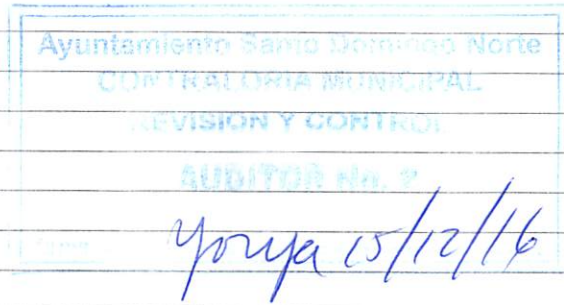 Ayuntamiento Santo Domingo Norte
CONTRALORIA MUNICIPAL
REVISION Y CONTROL
AUDITOR No.
15/12/16